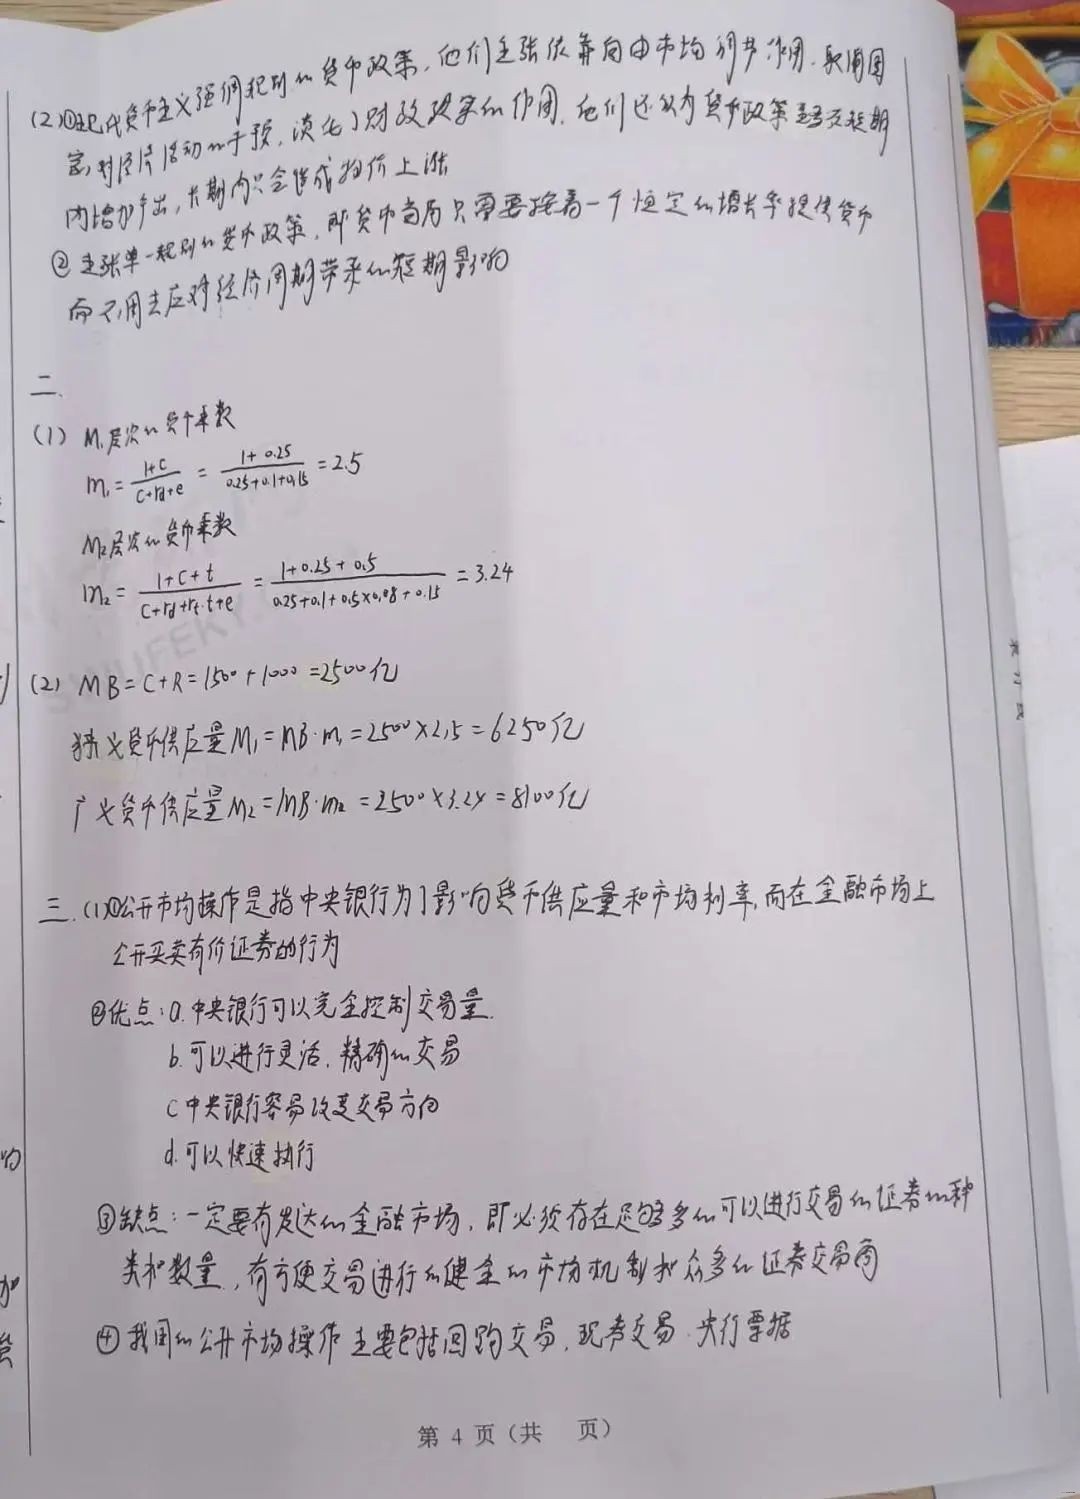 (2)①现代货币主义强调规则的货币政策,他们主张依靠自由市场调节作用,取消国
家对经济活动的干预,淡化了财政政策的作用,他们还认为货币政策短期
内增加产出,长期内只会造成物价上涨
②主张单一规则的货币政策,即货币当局只需要按着一个恒定的增长率提供货币
而不用去应对经济周期带来的短期影响
二、
(1) M₁层次的货币乘数
m₁=(1+c)/(c+rd+e)=(1+0.25)/(0.25+0.1+0.15)=2.5
M₂层次的货币乘数
m₂=(1+c+t)/(c+rd+rt·t+e)=(1+0.25+0.5)/(0.25+0.1+0.5×0.08+0.15)=3.24
(2) MB=C+R=1500+1000=2500亿
狭义货币供应量M₁=MB·m₁=2500×2.5=6250亿
广义货币供应量M₂=MB·m₂=2500×3.24=8100亿
三.(1)①公开市场操作是指中央银行为了影响货币供应量和市场利率,而在金融市场上
公开买卖有价证券的行为
②优点:a.中央银行可以完全控制交易量.
b.可以进行灵活,精确的交易
c中央银行容易改变交易方向
d.可以快速执行
③缺点:一定要有发达的金融市场,即必须存在足够多的可以进行交易的证券的种
类和数量,有方便交易进行的健全的市场机制和众多的证券交易商
④我国的公开市场操作主要包括回购交易,现券交易.央行票据
第 4 页(共 页)